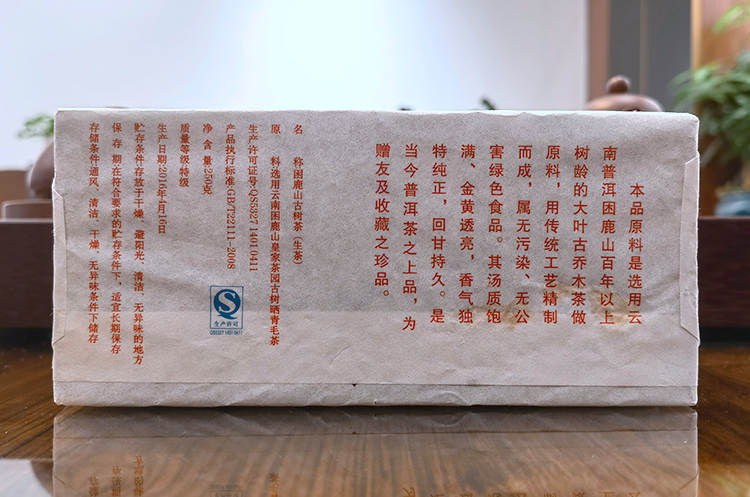 本品原料是选用云
南普洱困鹿山百年以上
树龄的大叶古乔木茶做
原料，用传统工艺精制
而成，属无污染、无公
害绿色食品。其汤质饱
满、金黄透亮，香气独
特纯正，回甘持久。是
当今普洱茶之上品，为
赠友及收藏之珍品。
名 称困鹿山古树茶（生茶）
原 料选用云南困鹿山皇家茶园古树晒青毛茶
生产许可证号:QS5327 1401 0411
产品执行标准:GB/T22111-2008
净 含 量250克
质量等级特级
生产日期2016年4月16日
贮存条件存放于干燥、避阳光、清洁、无异味的地方
保 存 期在符合要求的贮存条件下，适宜长期保存
存储条件通风、清洁、干燥、无异味条件下储存
生产许可
QS5327 1401 0411